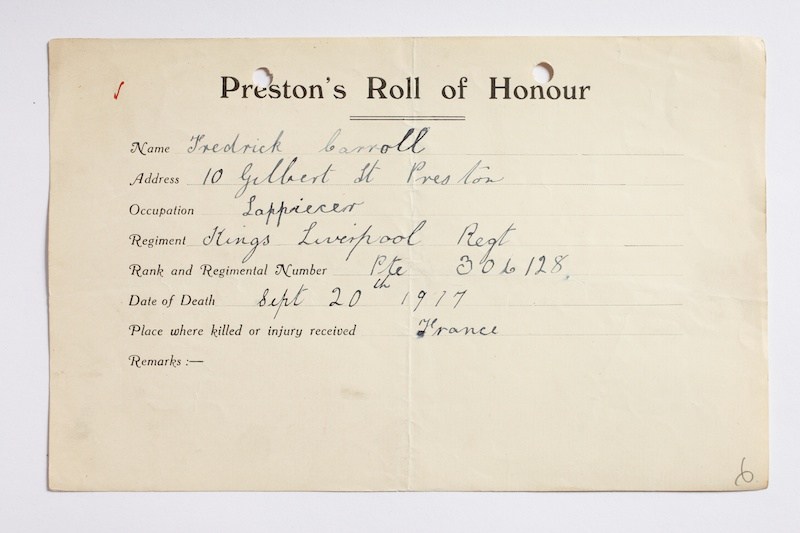 Preston's Roll of Honour
Name Fredrick Carroll
Address 10 Gilbert St Preston
Occupation Lappiecer
Regiment Kings Liverpool Regt
Rank and Regimental Number Pte 306128.
Date of Death Sept 20th 1917
Place where killed or injury received France
Remarks :—
6